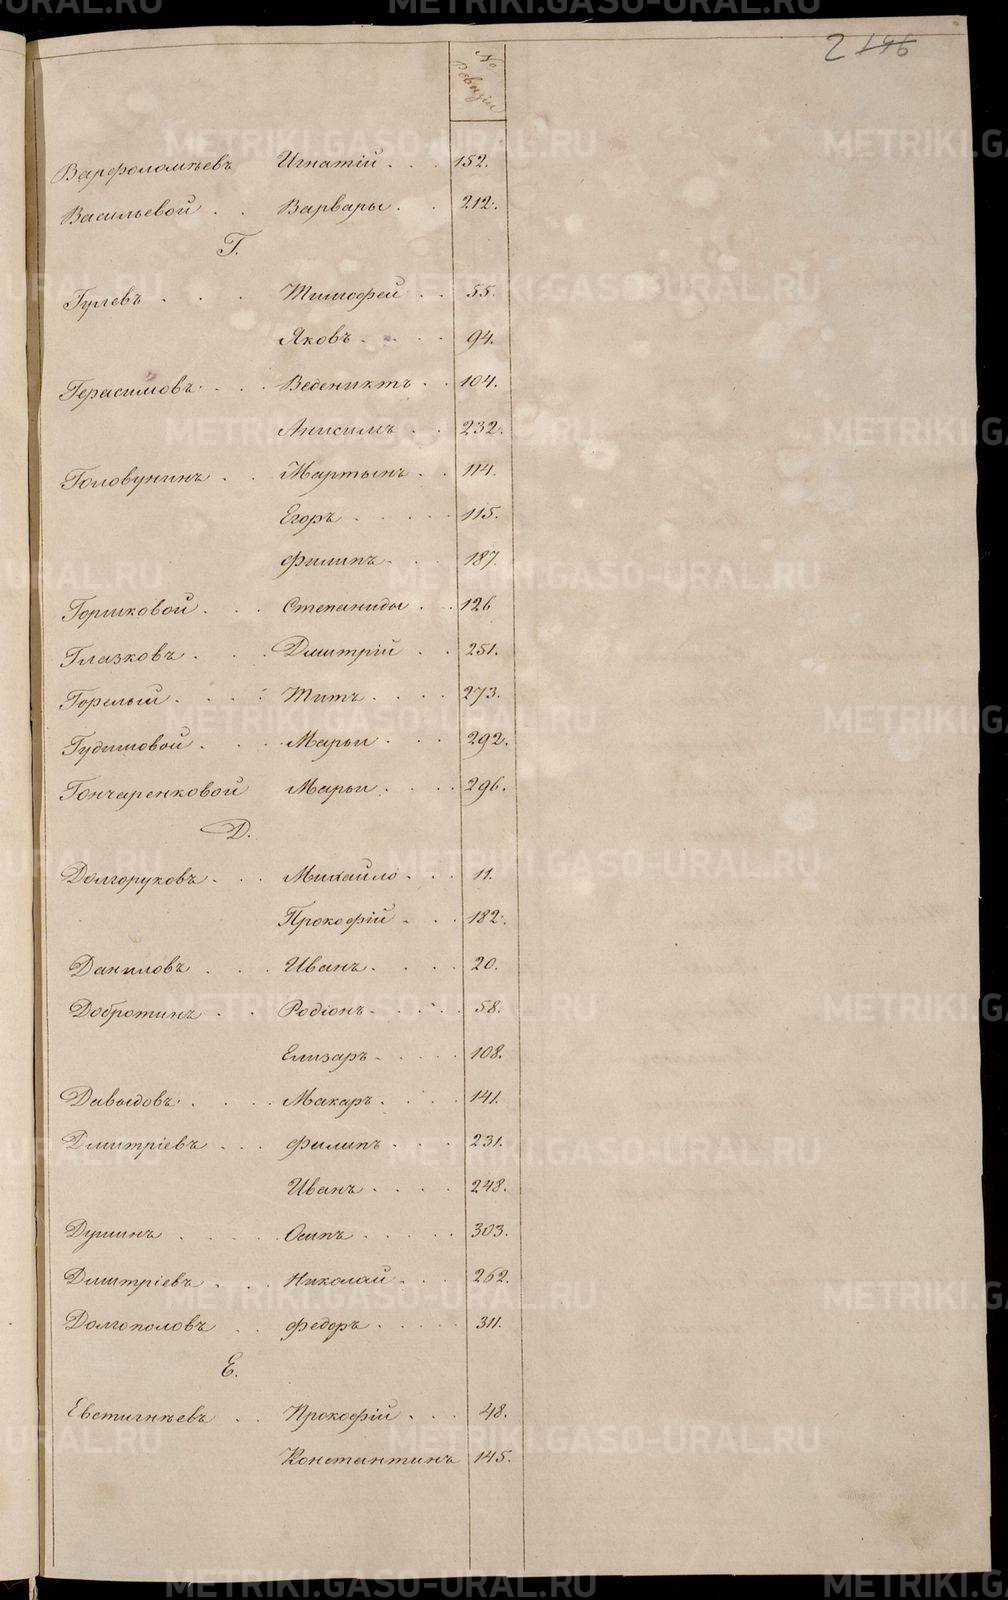 2 196
№
Ревизіи
Варфоломѣевъ Игнатій . . . 152.
Васильевой . . Варвары . . 212.
Г.
Гулевъ . . . Тимофей . . 55.
Яковъ . . . . 94.
Герасимовъ . . . Веденикть . . 104.
Анисимъ . . 232.
Головунинъ . . Мартынъ . . 114.
Егоръ . . . . . 115.
Филипъ . . . 187.
Горшковой . . . Степаниды . . 126
Глазковъ . . . Дмитрій . . 251.
Горелый . . . . Титъ . . . . 273.
Гудимовой . . . Марьи . . . 292.
Гончаренковой Марьи . . . . 296.
Д.
Долгоруковъ . . . Михайло . . . 11.
Прокофій . . . 182.
Даниловъ . . . Иванъ . . . . 20.
Добротинъ . . Родіонъ . . . . . 58.
Елизаръ . . . . 108.
Давыдовъ . . . . Макаръ . . . . 141.
Дмитріевъ . . . Филипъ . . . 231.
Иванъ . . . . 248.
Душинъ . . . . Осипъ . . . . . 303.
Дмитріевъ . . . Николай . . . 262.
Долгополовъ . . Федоръ . . . . . 311.
Е.
Евстигнѣевъ . . Прокофій . . . 48.
Константинъ 145.
METRIKI.GASO-URAL.RU